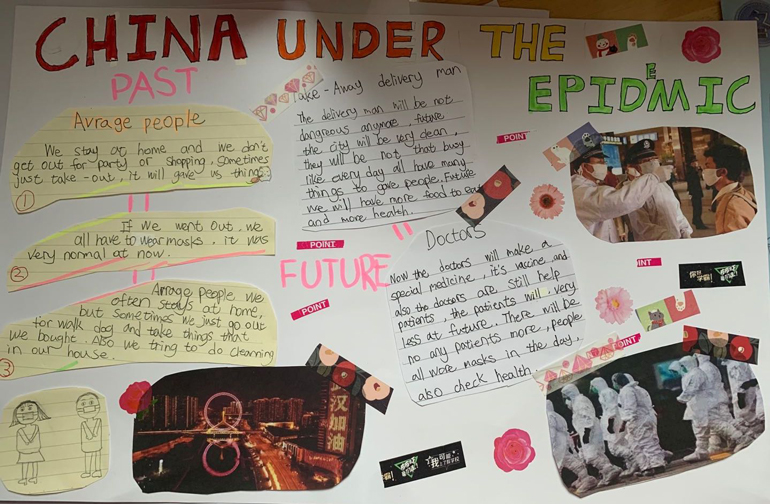 CHINA UNDER THE
E
EPIDMIC
PAST
Avrage people
We stay at home and we don't
get out for party or shopping, sometimes
just take-out, it will gave us things.
①
If we went out, we
all have to wear masks, it was
very normal at now.
②
Avrage people we
often stays at home,
but sometimes we just go out
for walk dog and take things that
we bought. Also we trying to do cleanning
in our house.
③
Take-Away delivery man
The delivery man will be not
dangreous anymore, future
the city will be very clean,
they will be not that busy
like every day all have many
things to gave people. Future
we will have more food to eat
and more health.
POINT
POINT
FUTURE
POINT
Doctors
Now the doctors will make a
special medicine, it's vaccine, and
also the doctors are still help
patients, the patients will very
less at future. There will be
no any patients more, people
all wore masks in the day,
also check health.
INT
POINT
汉加油
我可能
上了假学校